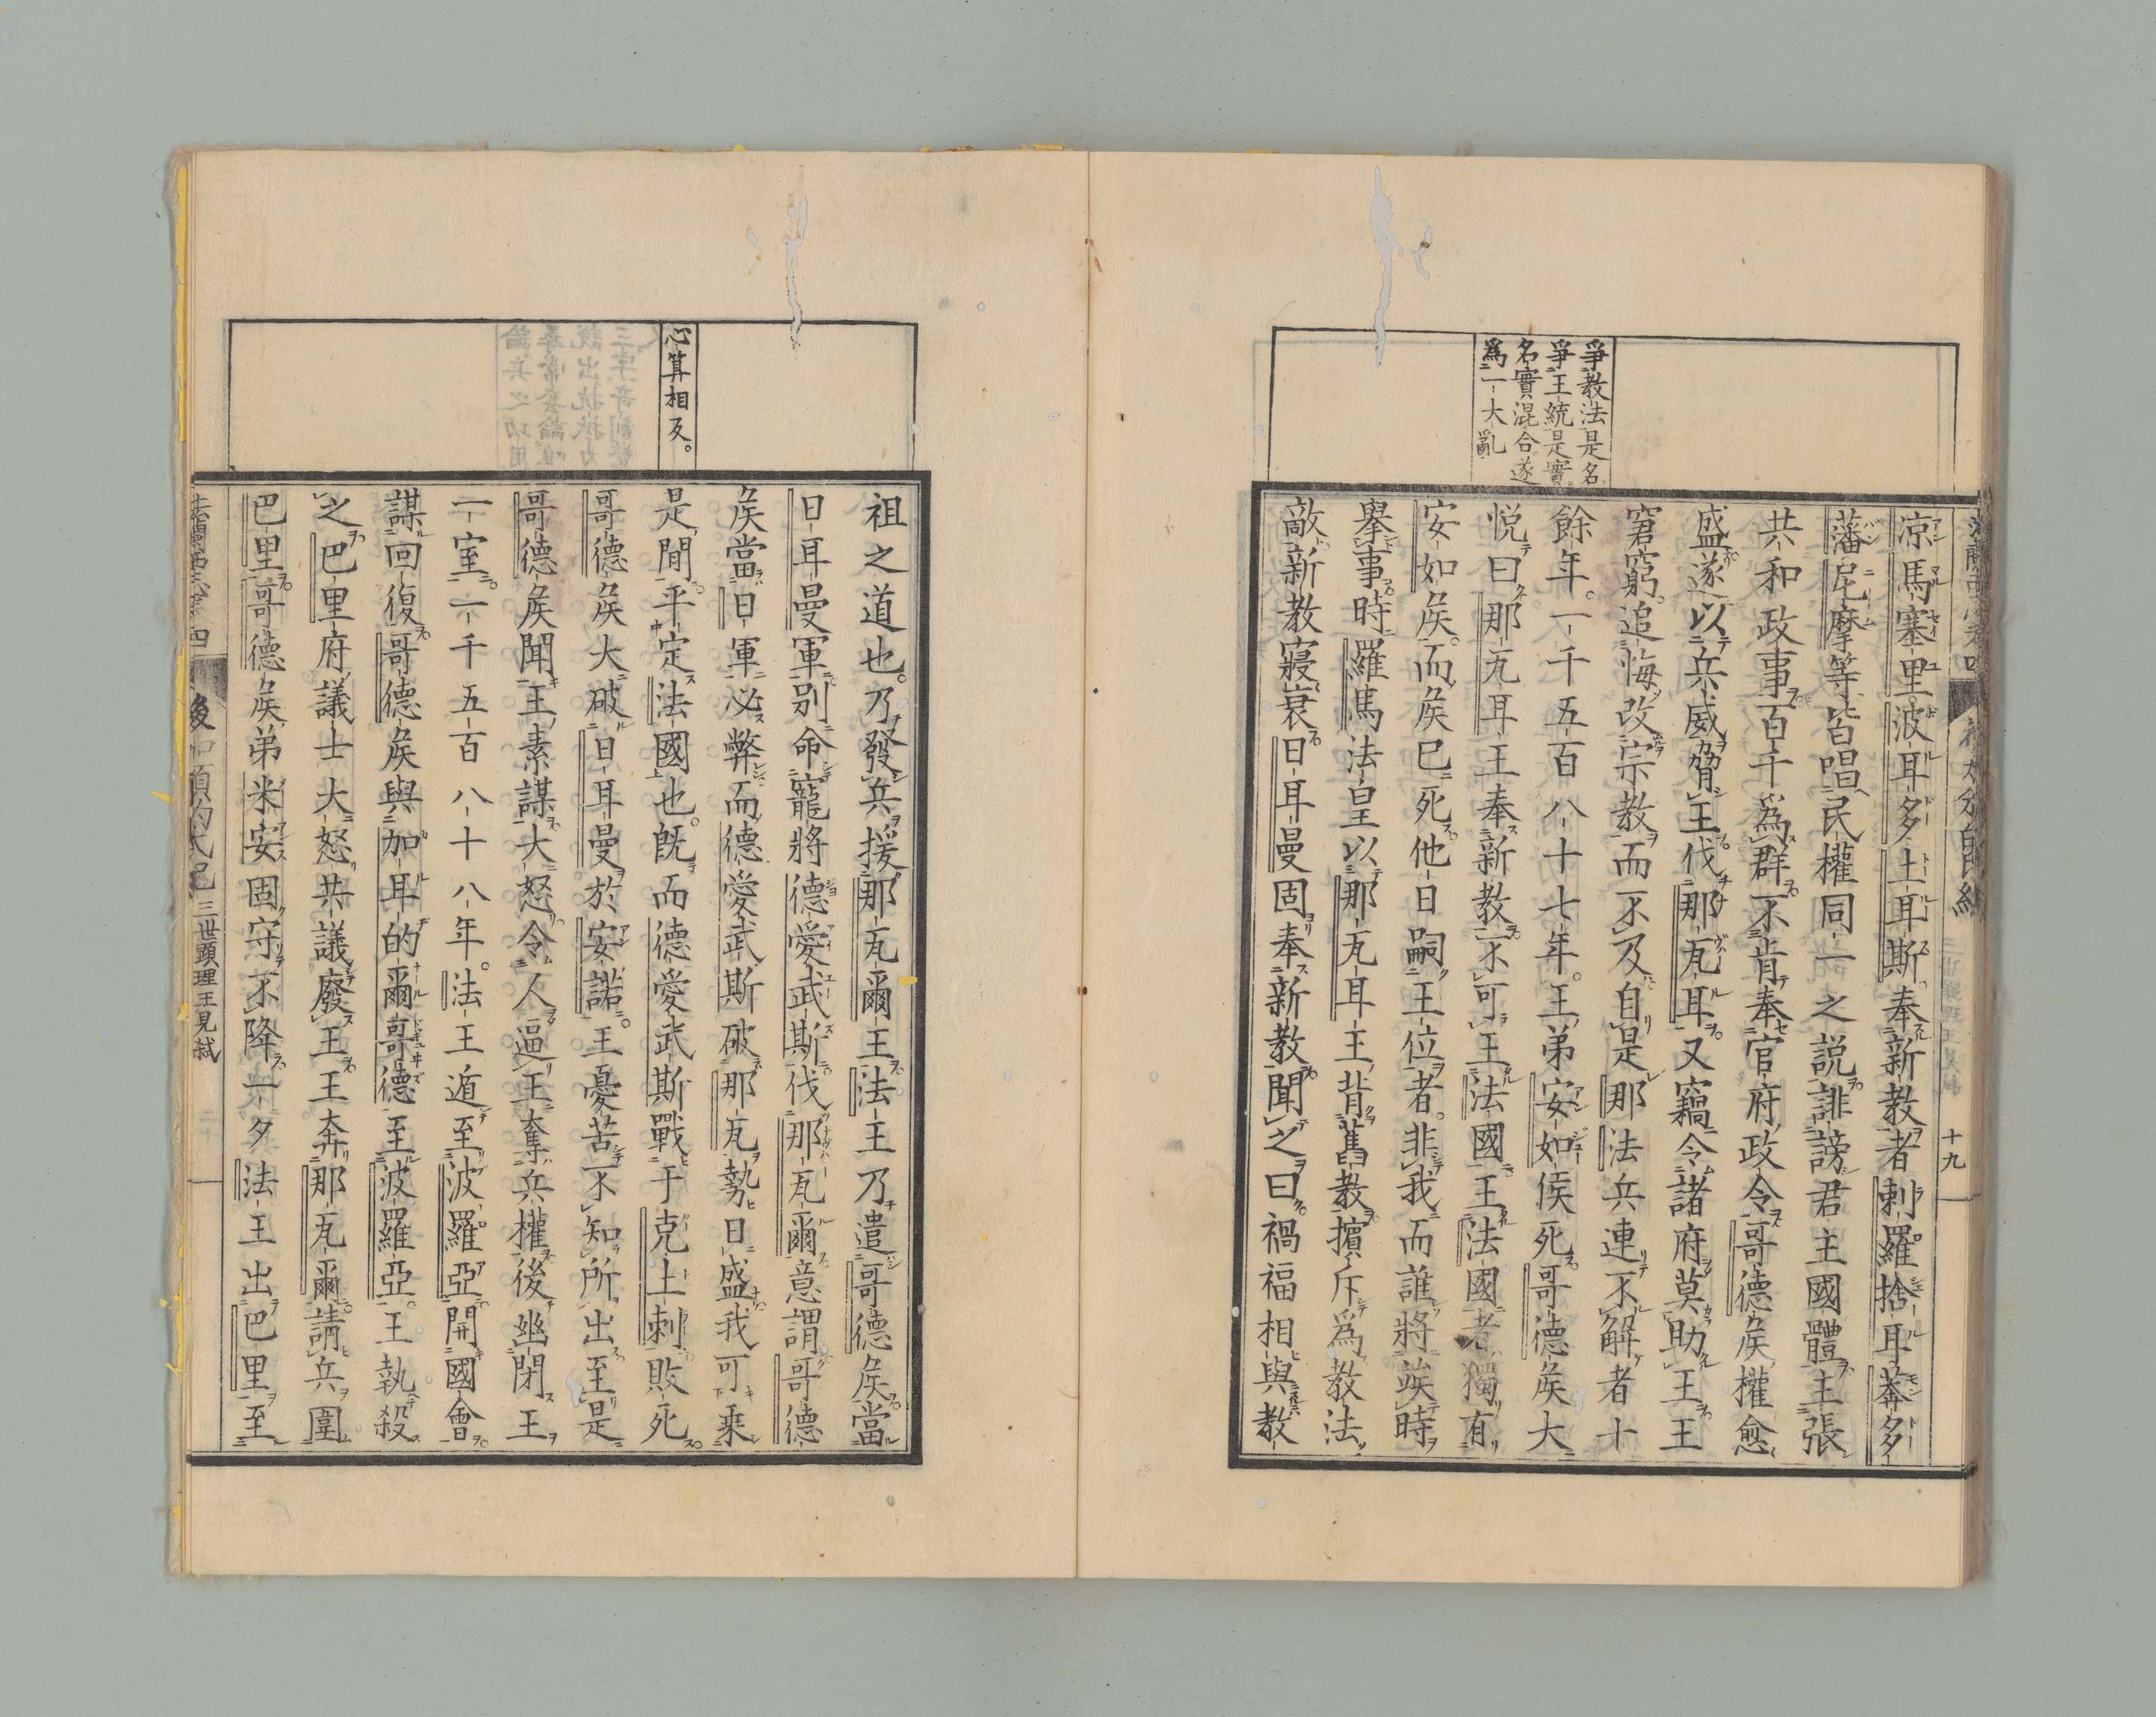 爭教法是名
爭王統是實
名實混合遂
爲一大亂
涼馬塞里波耳多土耳斯奉新教者剌羅捨耳莽多
藩尼摩等皆唱民權同一之說誹謗君主國體主張
共和政事百千爲群不肯奉官府政令哥德矦權愈
盛遂以兵威脅王伐那瓦耳又竊令諸府莫助王王
窘窮追悔改宗教而不及自是那法兵連不解者十
餘年一千五百八十七年王弟安如侯死哥德矦大
悅曰那瓦耳王奉新教不可王法國王法國者獨有
安如矦而矦已死他日嗣王位者非我而誰將竢時
擧事時羅馬法皇以那瓦耳主背舊教擯斥爲教法
敵新教寢衰日耳曼固奉新教聞之曰禍福相與教
十九
心算相反
祖之道也乃發兵援那瓦爾王法王乃遣哥德矦當
日耳曼軍別命寵將德愛武斯伐那瓦爾意謂哥德
矦當日軍必弊而德愛武斯破那瓦勢日盛我可乘
是間平定法國也旣而德愛武斯戰于克土剌敗死
哥德矦大破日耳曼於安諾王憂苦不知所出至是
哥德矦聞王素謀大怒令人逼王奪兵權後幽閉王
一室一千五百八十八年法王遁至波羅亞開國會
謀回復哥德矦與加耳的爾哥德至波羅亞王執殺
之巴里府議士大怒共議廢王王奔那瓦爾請兵圍
巴里哥德矦弟米安固守不降一夕法王出巴里至
三世顕理王見弑